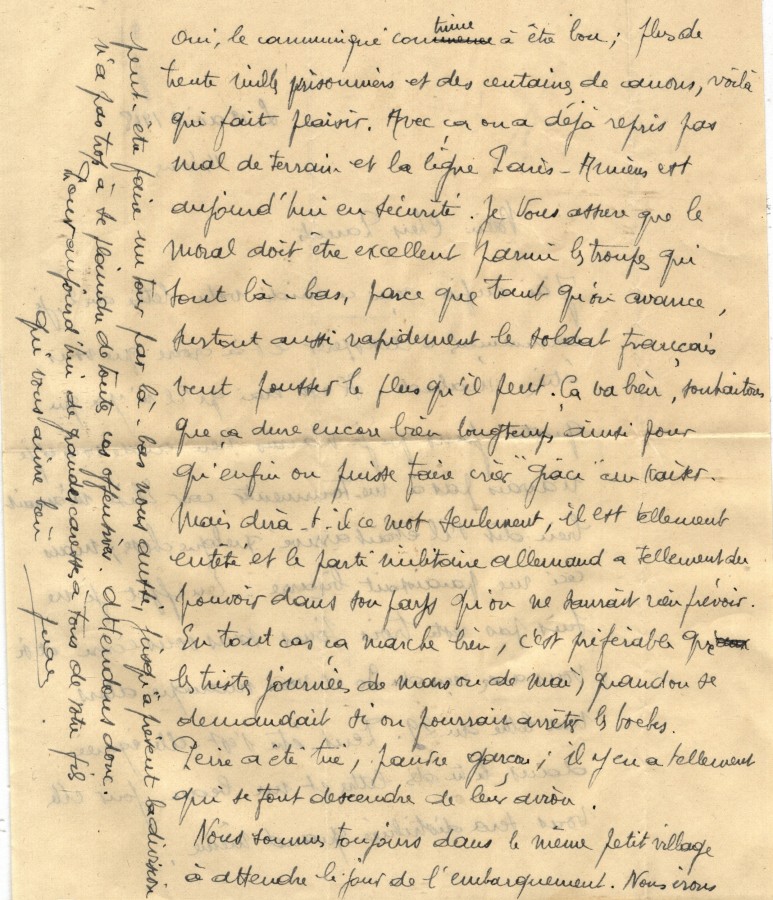 Oui, le communiqué continue à être bon; plus de
trente mille prisonniers et des centaines de canons, voilà
qui fait plaisir. Avec ça on a déjà repris pas
mal de terrain et la ligne Paris-Amiens est
aujourd'hui en sécurité. Je vous assure que le
moral doit être excellent parmi les troupes qui
sont là-bas, parce que tant qu'on avance,
surtout aussi rapidement le soldat français
veut pousser le plus qu'il peut. Ça va bien, souhaitons
que ça dure encore bien longtemps ainsi pour
qu'enfin on puisse faire crier "Grâce" au Kaiser.
Mais dira-t-il ce mot seulement, il est tellement
entêté et le parti militaire allemand a tellement du
pouvoir dans son pays qu'on ne saurait rien prévoir.
En tout cas ça marche bien, c'est préférable que
les tristes journées de mars ou de mai, quand on se
demandait si on pourrait arrêter les boches.
a été tué, pauvre garçon; il y en a tellement
qui se font descendre de leur avion.
Nous sommes toujours dans le même petit village
à attendre le jour de l'embarquement. Nous irons
peut-être faire un tour par là-bas nous aussi, jusqu'à présent la division
n'a pas trop à se plaindre de toutes ces offensives. Attendons donc.
Pour aujourd'hui de grandes caresses à tous de votre fils
qui vous aime bien